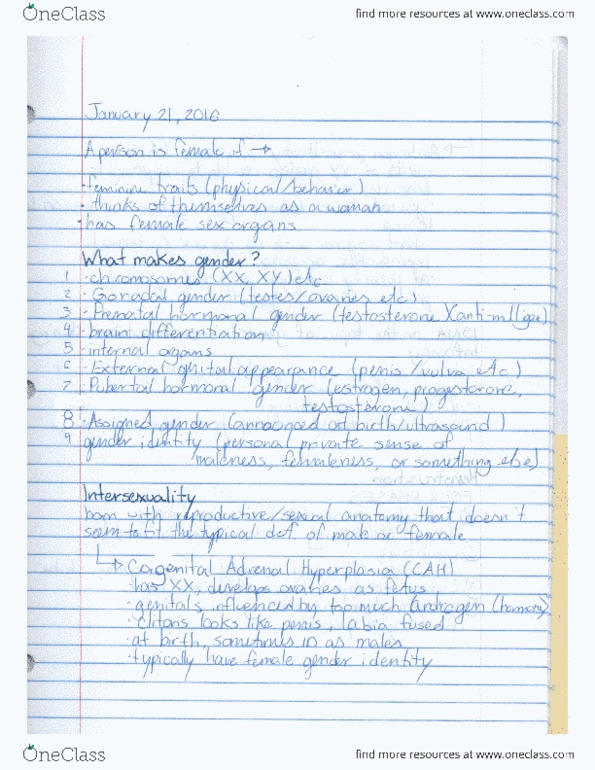 OneClass
find more resources at www.oneclass.com
January 21, 2016
A person is female if →
· feminine traits (physical/behavior)
· thinks of themselves as a woman
· has female sex organs
What makes gender?
1 · chromosomes (XX, XY) etc
2 · Gonadal gender (testes/ovaries etc)
3 · Prenatal hormonal gender (testosterone
4 · brain differentiation
5 · internal organs
6 · External genital appearance (penis/vulva, etc.)
7 · Pubertal hormonal gender (estrogen, progesterone,
testosterone)
8 · Assigned gender (announced at birth/ultrasound)
9 gender identity (personal private sense of
maleness, femaleness, or something else)
Intersexuality
born with reproductive/sexual anatomy that doesn't
seem to fit the typical def of male or female
↳ Congenital Adrenal Hyperplasia (CAH)
· has XX, develops ovaries as fetus
· genitals influenced by too much androgen (hormone)
· clitoris looks like penis, labia fused
· at birth, sometimes ID as males
· typically have female gender identity
OneClass
find more resources at www.oneclass.com